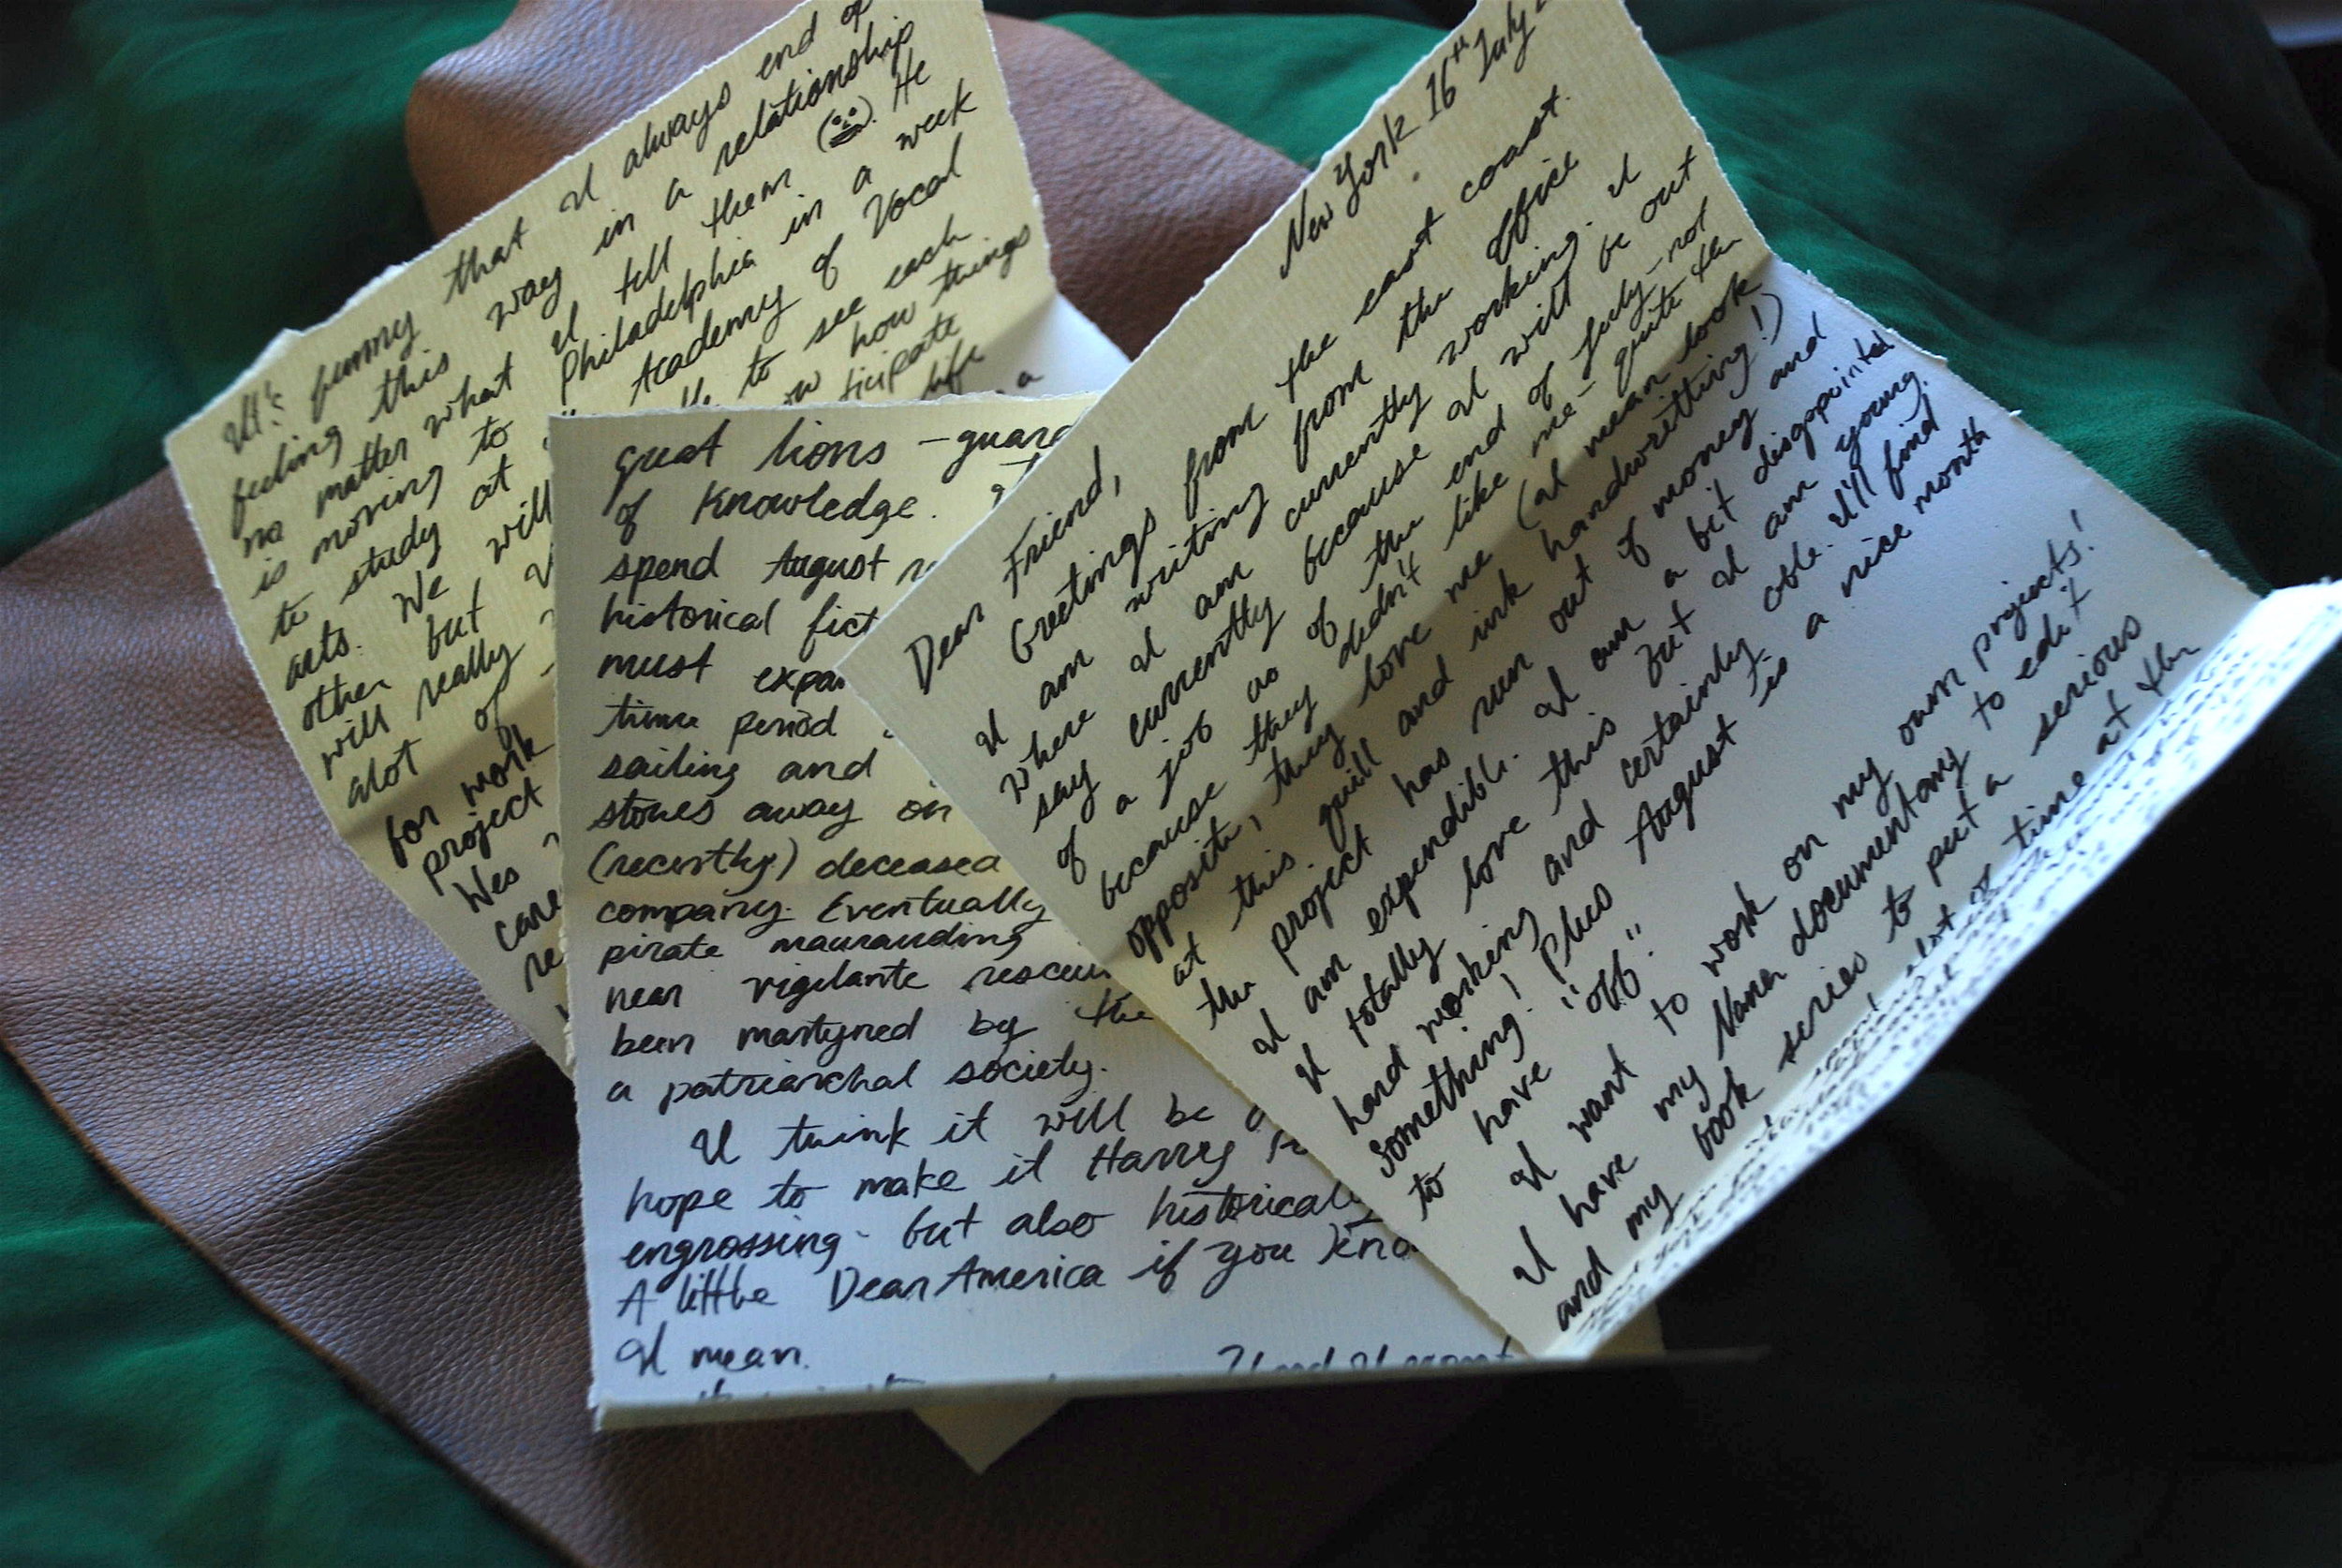 New York 16th July
Dear Friend,
Greetings from the east coast.
I am writing from the office
where I am currently working. I
say currently because I will be out
of a job as of the end of july - not
because they didn't like me - quite the
opposite, they love me (I mean look
at this quill and ink handwritting!)
the project has run out of money and
I am expendible. I am a bit disappointed
I totally love this But I am young.
hard working and certainly able. I'll find
something! Plus August is a nice month
to have "off".
I want to work on my own projects!
I have my Nana documentary to edit
and my book series to put a serious
alot of time at the
great lions - guard
of Knowledge.
spend August
historical fict
must expa
time period
sailing and
stows away on
(recently) deceased
company. Eventually
pirate maurauding
near vigilante rescue
been martyred by the
a patriarchal society.
I think it will be
hope to make it Harry
engrossing - but also historically
A little Dear America if you kno
I mean.
It's funny that I always end
feeling this way in a relationship
no matter what I tell them. He
is moving to Philadelphia in a week
to study at Academy of Vocal
arts. We will to see each
other but how things
will really ticipate
alot of life
for work a
project
Wes
care
re